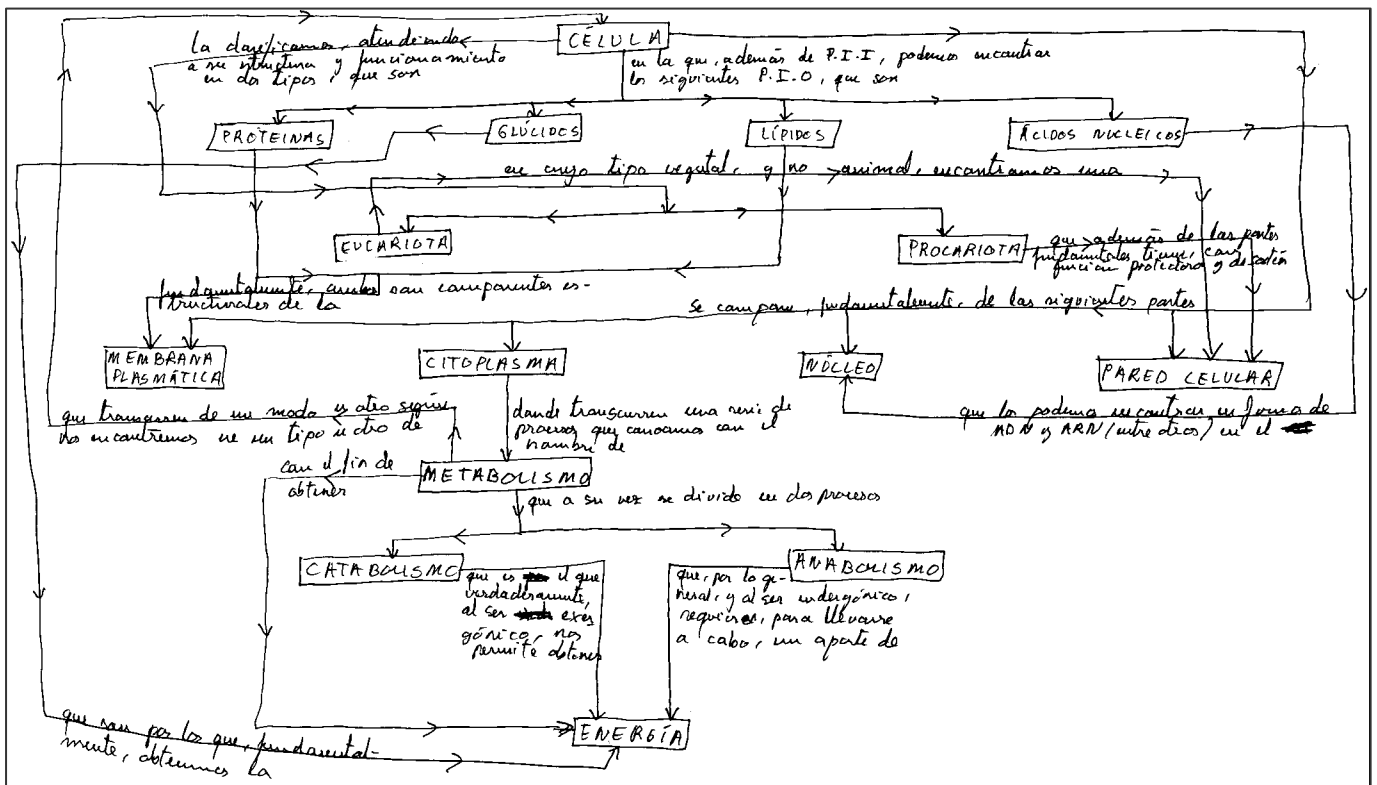 CÉLULA
la clasificamos, atendiendo
a su estructura y funcionamiento
en dos tipos, que son
en la que, además de P.I.I, podemos encontrar
los siguientes P.I.O, que son
PROTEINAS
GLÚCIDOS
LÍPIDOS
ÁCIDOS NUCLEICOS
en cuyo tipo vegetal, y no animal, encontramos una
EUCARIOTA
PROCARIOTA
que además de las partes
fundamentales tiene, con
funcion protectora y de sostén
fundamentalmente, ambos son componentes es-
tructurales de la
se compone, fundamentalmente, de las siguientes partes
MEMBRANA
PLASMÁTICA
CITOPLASMA
NÚCLEO
PARED CELULAR
que transcurren de un modo u otro según
nos encontremos en un tipo u otro de
donde transcurren una serie de
procesos que conocemos con el
nombre de
que los podemos encontrar en forma de
ADN y ARN (entre otros) en el
con el fin de
obtener
METABOLISMO
que a su vez se divide en dos procesos
CATABOLISMO
ANABOLISMO
que es el que
verdaderamente,
al ser exer
gónico, nos
permite obtener
que, por lo ge-
neral, y al ser endergónico,
requiere, para llevarse
a cabo, un aporte de
ENERGÍA
que son por los que, fundamental-
mente, obtenemos la